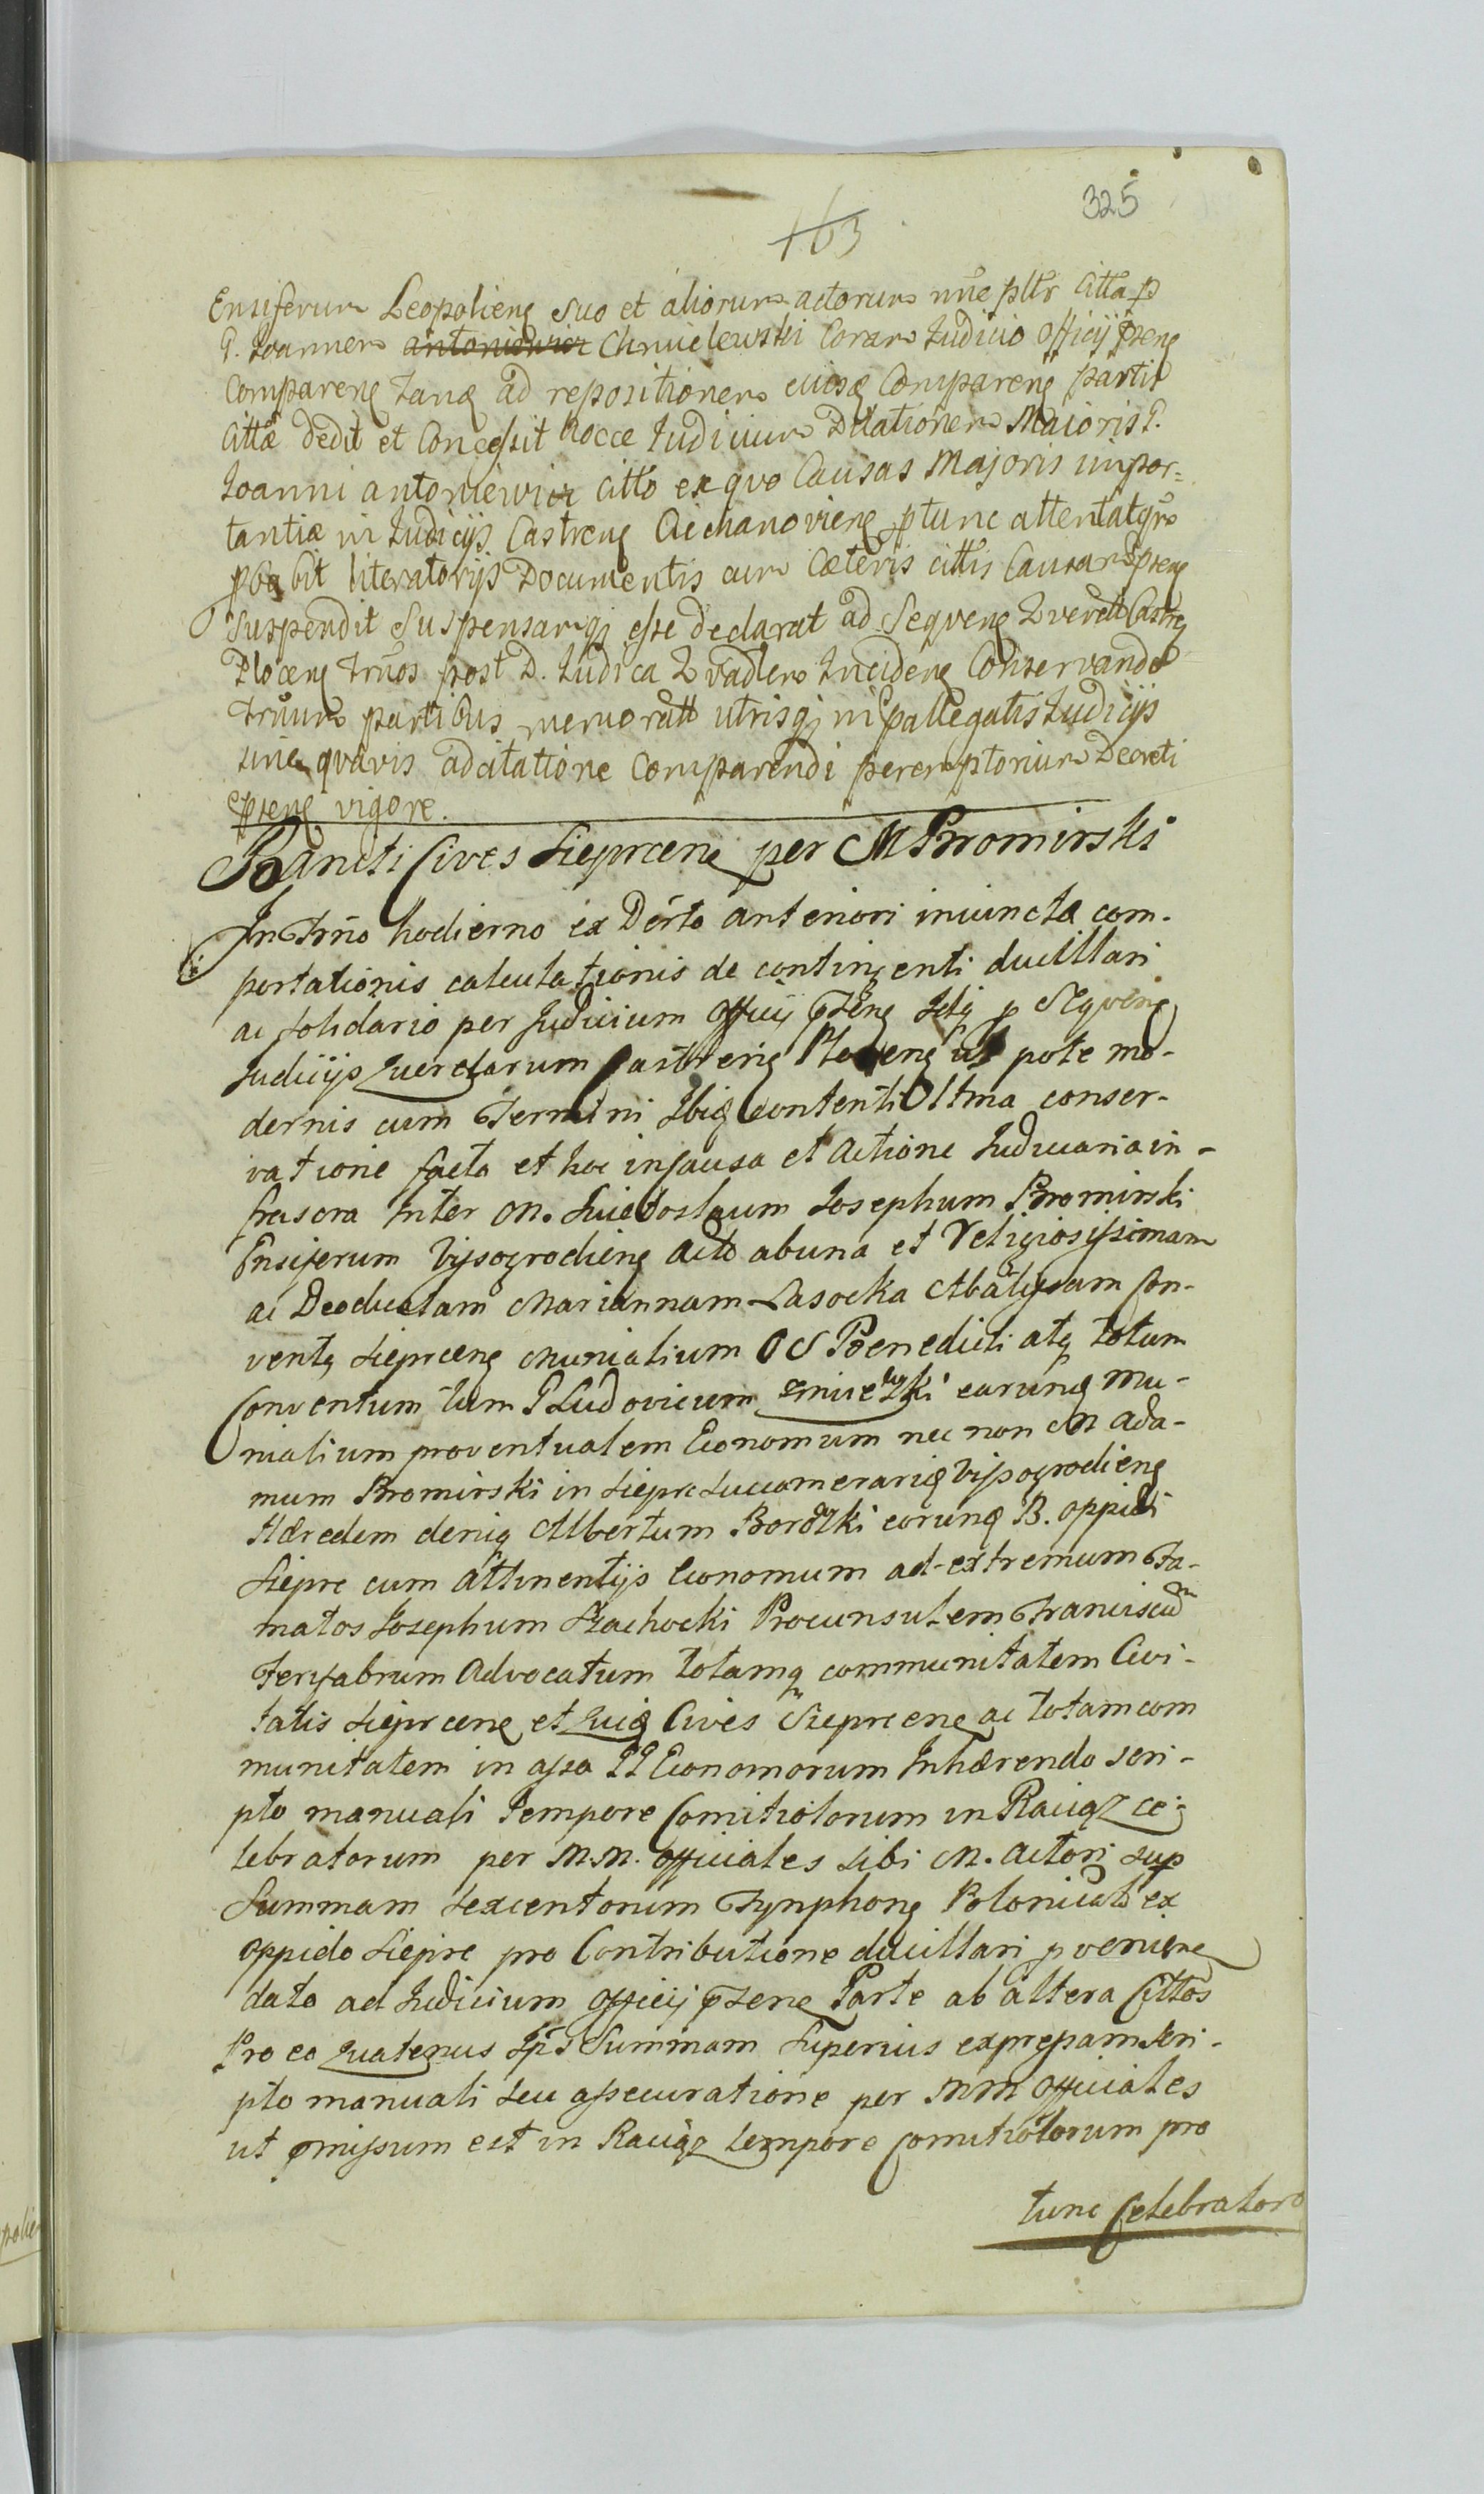 325
163
Ensiferum Leopolieng suo et aliorum actorum nne pltr Citta p
G. Joannem antoniewicz Chmielewski Coram Judicio Officij pseng
Compareng tanq ad repositionem eiusq Compareng partis
Citta dedit et Concessit hocce Judicium Dilationem Maioris G.
Joanni antoniewicz citto ex quo Causas Majoris impor=
tantiæ in Judicijs Castreng Ciechanovieng ptunc attentat
pbabit literatorijs Documentis cum Cæteris cittis Causam pseng
Suspendit Suspensamqj esse declarat ad Seqveng Qverell Castreng
Ploceng trnos post D. Judica Qvadlem Incideng Conservando
trnum partibus memoratt utrisqj in pallegatis Judicijs
sine qvavis adcitatione Comparendi peremptorium Decreti
pseng vigore.
Banniti Cives Sieprceng per M Bromirski
In Trno hodierno ex Dcrto anteriori iniunctæ com-
portationis calculationis de contingenti ducillari
ac solidario per Judicium Officij pseng p Seqveng
Judicijs Querelarum Castreng Ploceng ut pote mo-
dernis cum Termini Ibiq contenti conser-
vatione facto et hoc in causa et Actione Judiciaria in-
frascra Inter M. Josephum Bromirski
Ensiferum Vyssogrodieng Acto ab una et Religiosissimam
ac Deodicatam Mariannam Lasocka Abbatissam Con-
ventq Sieprceng Munialium O S Benedicti atq totum
Conventum tum G Ludovicum earunq Mu-
nialium proventualem Economum nec non M Ada-
mum Bromirski in Sieprc Succamerariq Vyssogrodieng
Hæredem deniq Albertum eorunq B. oppidi
Sieprc cum Attinentijs Economum ad extremum Fa-
matos Josephum Szachocki Proconsulem Franciscum
Feryabrum Advocatum totamq communitatem Civi-
tatis Sieprceng et Cives Sieprceng ac totam com
munitatem in assa GG Economorum Inhærendo scri-
pto manuali tempore Comitiolorum in Raciąz ce-
lebratorum per M.M. Officiales sibi M. Actori sup
Summam sexcentorum Tynphong Polonical ex
oppido Sieprc pro Contributione ducillari pvenieng
dato ad Judicium Officij pseng Parte ab altera Cittos
Pro eo Quatenus Ipsi Summam Superius expressam scri-
pto manuali seu assecuratione per MM Officiales
ut pmissum est in Raciąz tempore comitiolorum pro
tunc Celebratoro